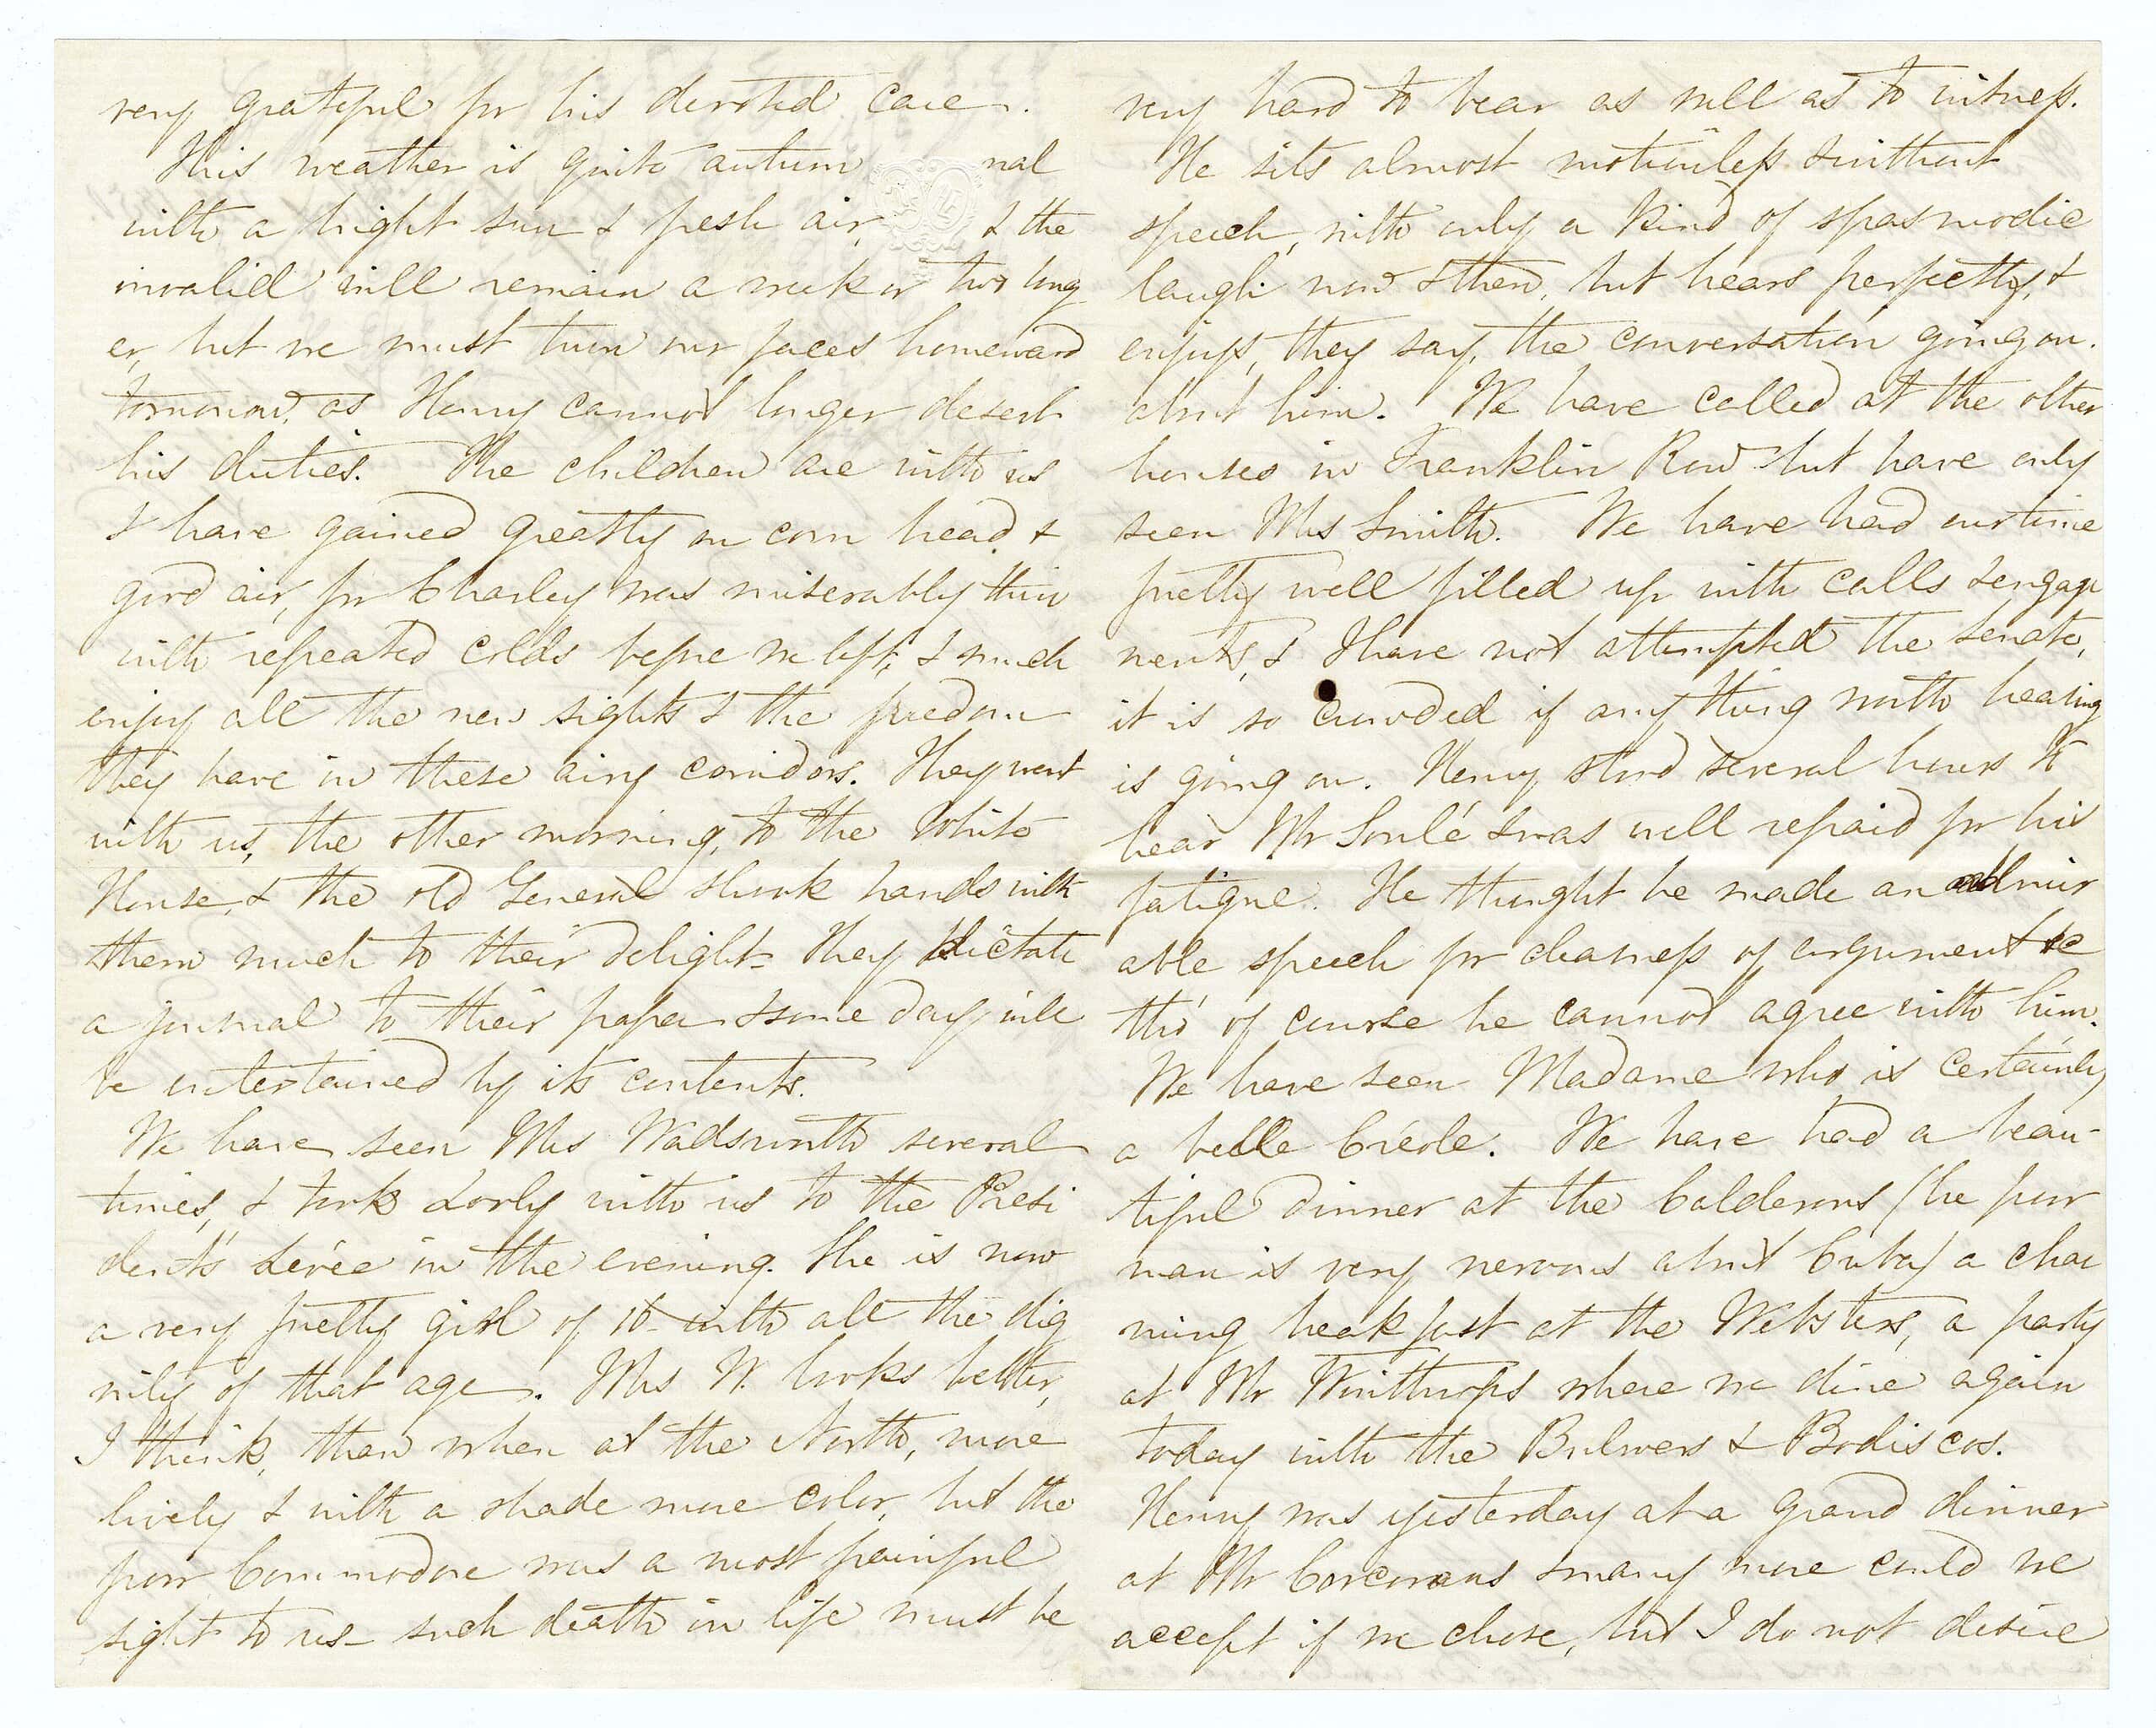 very grateful for his devoted care.
This weather is quite autumnal
with a bright sun & fresh air, & the
invalid will remain a week or two long
er, but we must turn our faces homeward
tomorrow, as Henry cannot longer desert
his duties. The children are with us
& have gained greatly on corn bread &
good air, for Charley was miserably thin
with repeated colds before we left, & much
enjoy all the new sights & the freedom
they have in these airy corridors. They went
with us, the other morning, to the White
House, & the old General shook hands with
them much to their delight. They dictate
a journal to their papa & some day will
be entertained by its contents.
We have seen Mrs Wadsworth several
times, & took Lorly with us to the Presi
dent's Levée in the evening. She is now
a very pretty girl of 16 with all the dig
nity of that age. Mrs W. looks better,
I think, than when at the North, more
lively & with a shade more color, but the
poor Commodore was a most painful
sight to us – such death in life must be
very hard to bear as well as to witness.
He sits almost motionless & without
speech, with only a kind of spasmodic
laugh now & then, but hears perfectly, &
enjoys, they say, the conversation going on
about him. We have called at the other
houses in Franklin Row but have only
seen Mrs Smith. We have had our time
pretty well filled up with calls & engage
ments, & I have not attempted the Senate,
it is so crowded if any thing worth hearing
is going on. Henry stood several hours to
hear Mr Soulé & was well repaid for his
fatigue. He thought he made an admir
able speech for clearness of argument &c
tho' of course he cannot agree with him.
We have seen Madame who is certainly
a belle Créole. We have had a beau-
tiful dinner at the Calderons (he poor
man is very nervous about Cuba) a char
ming breakfast at the Websters, a party
at Mr Winthrops where we dine again
today with the Bulwers & Bodiscos.
Henry was yesterday at a grand dinner
at Mr Corcorans & many more could we
accept if we chose, but I do not desire